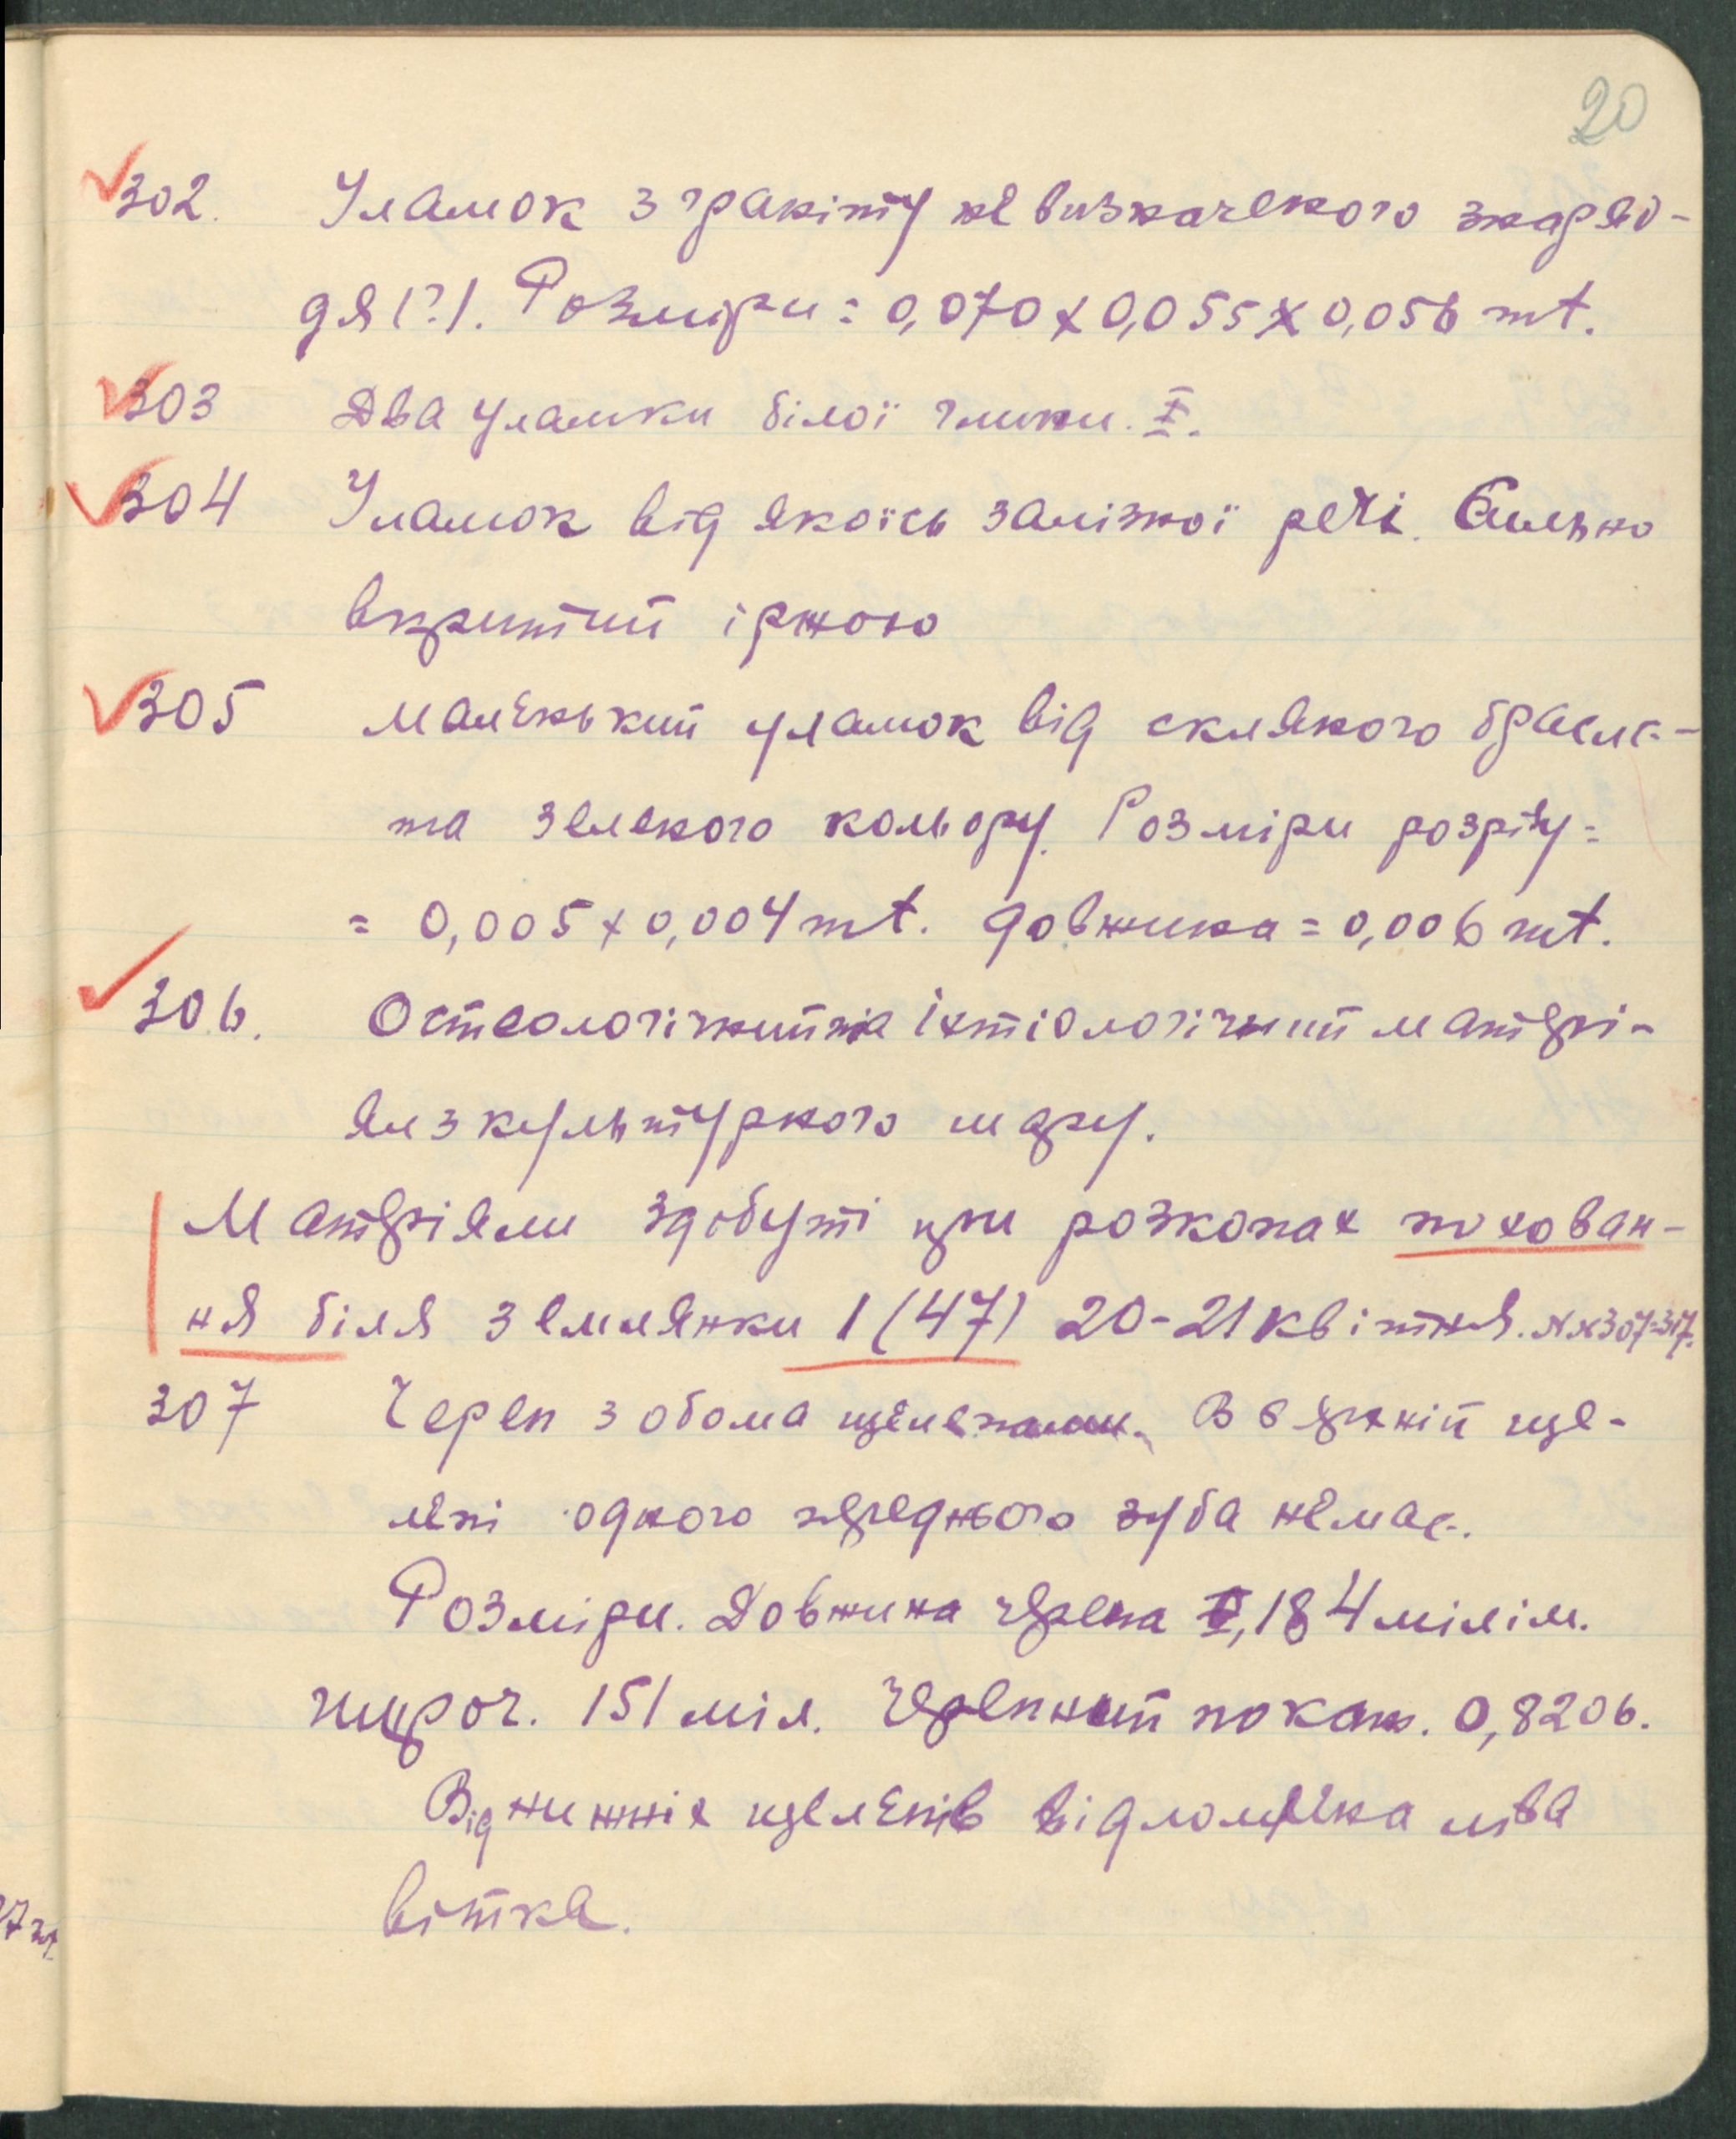 20
302. Уламок з граніту невизначеного знаряд-
дя (?). Розміри = 0,070 x 0,055 x 0,056 mt.
303 Два уламки білої глини. I.
304 Уламок від якоїсь залізної речі. Сильно
вкритий іржою
305 Маленький уламок від скляного брасле-
та зеленого кольору. Розміри розрізу =
= 0,005 x 0,004 mt. довжина = 0,006 mt.
306. Остеологічний та іхтіологічний матері-
ял з культурного шару.
Матеріяли здобуті при розкопах похован-
ня біля землянки 1 (47) 20-21 квітня. №№ 307-317.
307 Череп з обома щелепами. В верхній ще-
лепі одного переднього зуба немає.
Розміри. Довжина черепа 184 мілім.
широч. 151 міл. Черепний покаж. 0,8206.
Від нижніх щелепів відломлена ліва
вітка.